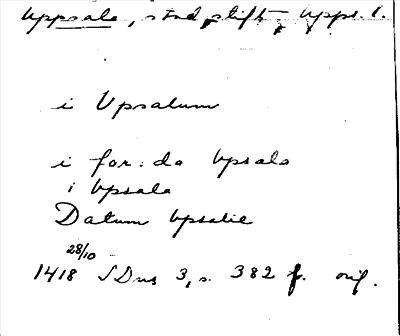 Uppsala, stad, stift, Upps. l.
i Upsalum
i for:da Upsala
i Upsala
Datum Upsalie
28/10
1418 SDns 3, s. 382 f. orig.